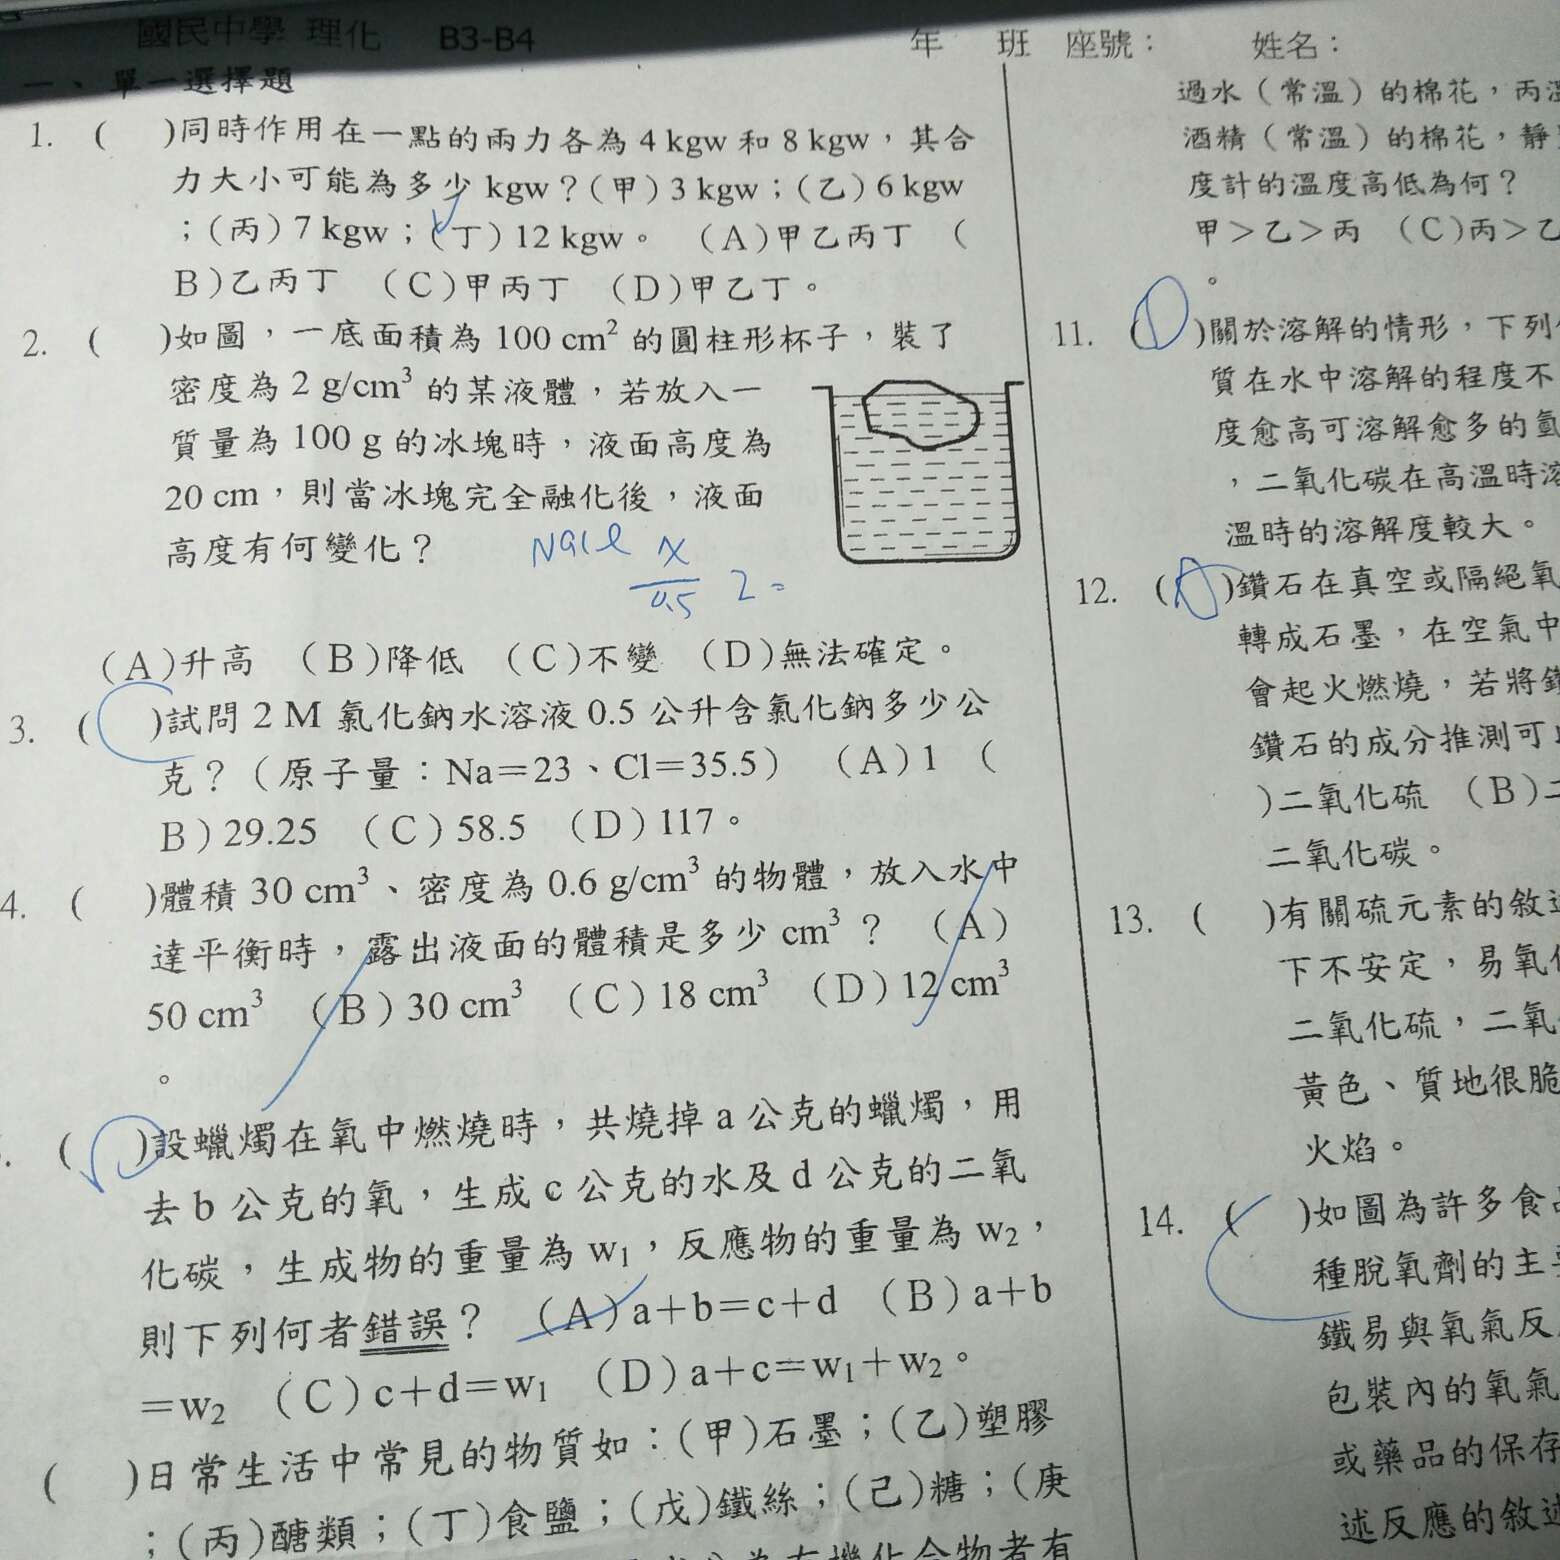 國民中學 理化 B3-B4
年 班 座號： 姓名：
一、單一選擇題
1. ( )同時作用在一點的兩力各為 4 kgw 和 8 kgw，其合
力大小可能為多少 kgw？(甲) 3 kgw；(乙) 6 kgw
；(丙) 7 kgw；(丁) 12 kgw。 (A)甲乙丙丁 (
B)乙丙丁 (C)甲丙丁 (D)甲乙丁。
2. ( )如圖，一底面積為 100 cm² 的圓柱形杯子，裝了
密度為 2 g/cm³ 的某液體，若放入一
質量為 100 g 的冰塊時，液面高度為
20 cm，則當冰塊完全融化後，液面
高度有何變化？
NaCl x/0.5 2=
(A)升高 (B)降低 (C)不變 (D)無法確定。
3. ( )試問 2 M 氯化鈉水溶液 0.5 公升含氯化鈉多少公
克？(原子量：Na＝23、Cl＝35.5) (A) 1 (
B) 29.25 (C) 58.5 (D) 117。
4. ( )體積 30 cm³、密度為 0.6 g/cm³ 的物體，放入水中
達平衡時，露出液面的體積是多少 cm³？ (A)
50 cm³ (B) 30 cm³ (C) 18 cm³ (D) 12 cm³
。
( )設蠟燭在氧中燃燒時，共燒掉 a 公克的蠟燭，用
去 b 公克的氧，生成 c 公克的水及 d 公克的二氧
化碳，生成物的重量為 w₁，反應物的重量為 w₂，
則下列何者錯誤？ (A) a＋b＝c＋d (B) a＋b
＝w₂ (C) c＋d＝w₁ (D) a＋c＝w₁＋w₂。
( )日常生活中常見的物質如：(甲)石墨；(乙)塑膠
；(丙)醣類；(丁)食鹽；(戊)鐵絲；(己)糖；(庚
為有機化合物者有
過水(常溫)的棉花，丙
酒精(常溫)的棉花，靜
度計的溫度高低為何？
甲＞乙＞丙 (C)丙＞乙
。
11. ( )關於溶解的情形，下列
質在水中溶解的程度不
度愈高可溶解愈多的氫
，二氧化碳在高溫時溶
溫時的溶解度較大。
12. (A)鑽石在真空或隔絕氧
轉成石墨，在空氣中
會起火燃燒，若將鑽
鑽石的成分推測可
)二氧化硫 (B)二
二氧化碳。
13. ( )有關硫元素的敘述
下不安定，易氧化
二氧化硫，二氧
黃色、質地很脆
火焰。
14. ( )如圖為許多食品
種脫氧劑的主要
鐵易與氧氣反
包裝內的氧氣
或藥品的保存
述反應的敘述